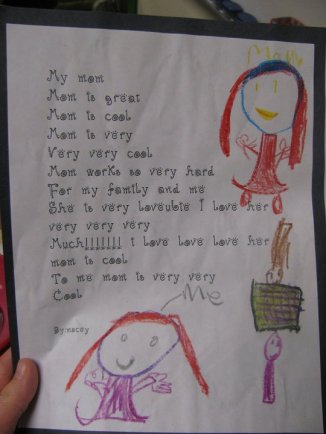 Mom
My mom
Mom is great
Mom is cool
Mom is very
Very very cool
Mom works so very hard
For my family and me
She is very loveubie I love her
very very very
Much!!!!!!! i love love love her
mom is cool
To me mom is very very
Cool
Me
By:macey